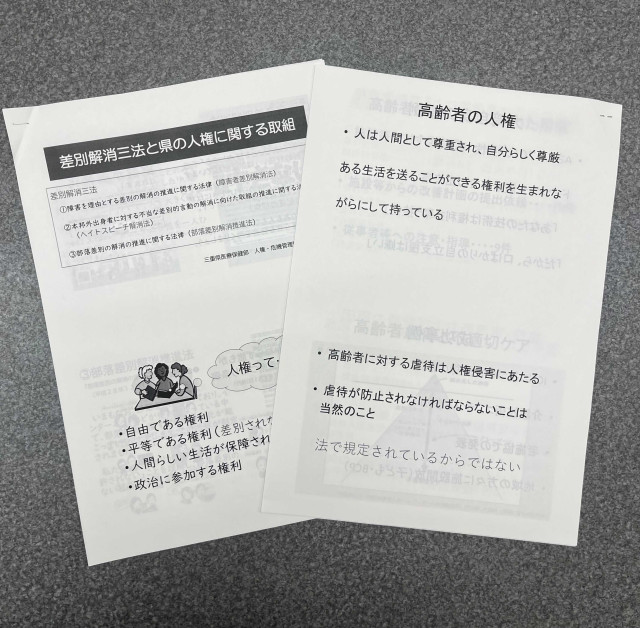 差別解消三法と県の人権に関する取組
差別解消三法
①障害を理由とする差別の解消の推進に関する法律（障害者差別解消法）
②本邦外出身者に対する不当な差別的言動の解消に向けた取組の推進に関する法
（ヘイトスピーチ解消法）
③部落差別の解消の推進に関する法律（部落差別解消推進法）
三重県医療保健部 人権・危機管理
人権って
・自由である権利
・平等である権利（差別されな
・人間らしい生活が保障され
・政治に参加する権利
高齢者の人権
・人は人間として尊重され、自分らしく尊厳
ある生活を送ることができる権利を生まれな
がらにして持っている
・高齢者に対する虐待は人権侵害にあたる
・虐待が防止されなければならないことは
当然のこと
法で規定されているからではない